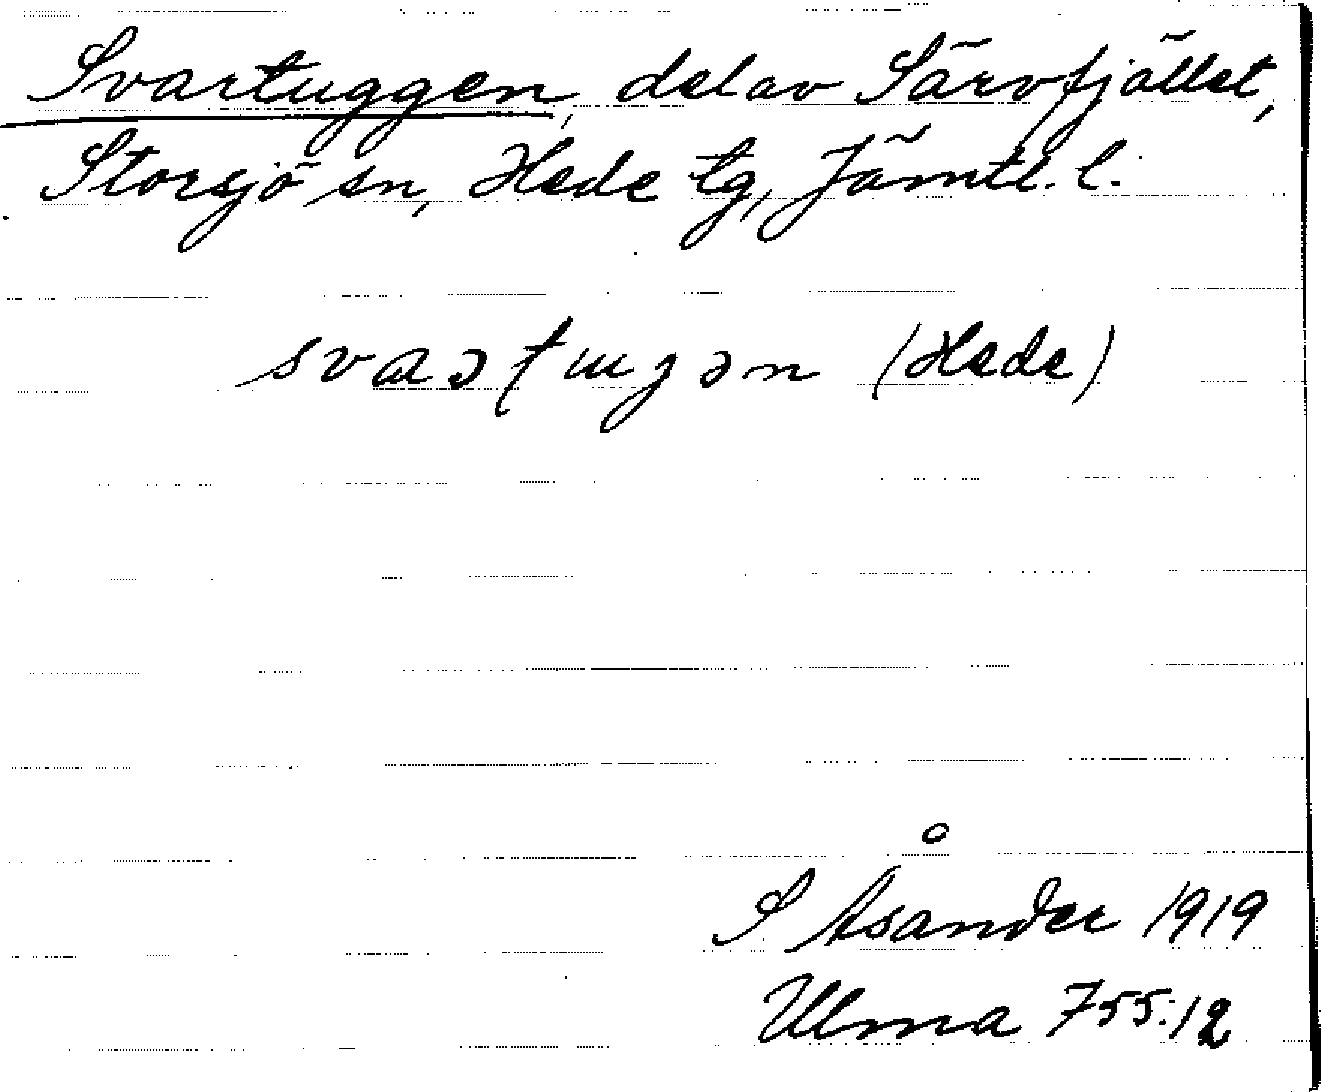 Svartuggen, del av Särvfjället,
Storsjö sn, Hede tg, Jämtl. l.
(Hede)
S Åsander 1919
Ulma 755:12